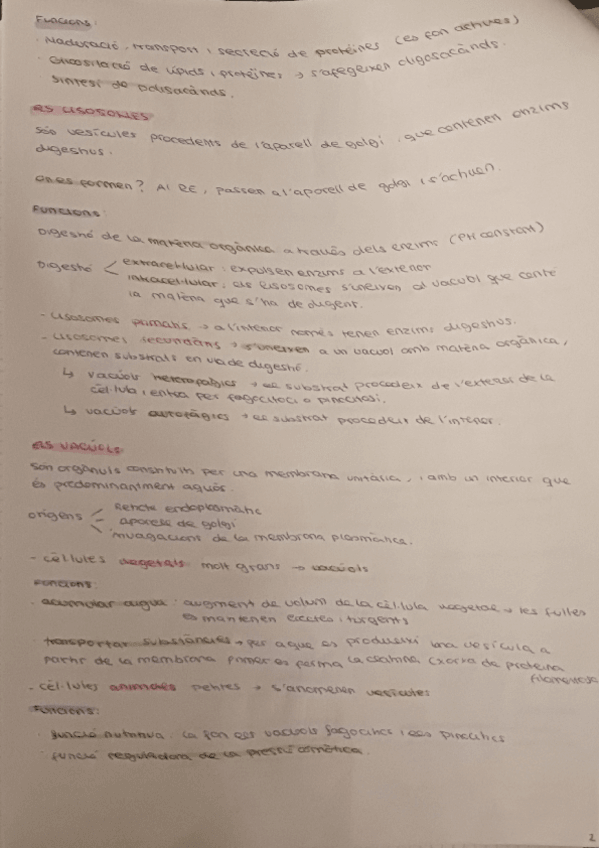 Funcions:
· Maduració, transport i secreció de proteïnes (es fan actives)
· Glicosilació de lípids i proteïnes → s'afegeixen oligosacàrids.
· Síntesi de polisacàrids.
ELS LISOSOMES
Són vesícules procedents de l'aparell de golgi, que contenen enzims
digestius.
On es formen? Al RE, passen a l'aparell de golgi i s'activen.
Funcions:
Digestió de la matèria orgànica a través dels enzims (PH constant)
Digestió < extracel·lular: expulsen enzims a l'exterior
intracel·lular: els lisosomes s'uneixen al vacúol que conté
la matèria que s'ha de digerir.
- Lisosomes primaris → a l'interior només tenen enzims digestius.
- Lisosomes secundaris → s'uneixen a un vacúol amb matèria orgànica,
contenen substrats en via de digestió.
↳ vacúols heterofàgics → el substrat procedeix de l'exterior de la
cèl·lula i entra per fagocitosi o pinocitosi.
↳ vacúols autofàgics → el substrat procedeix de l'interior.
ELS VACÚOLS
Són orgànuls constituïts per una membrana unitària, i amb un interior que
és predominantment aquós.
orígens - Reticle endoplasmàtic
- aparell de golgi
- invaginacions de la membrana plasmàtica.
- cèl·lules vegetals molt grans → vacúols
Funcions:
· acumular aigua: augment de volum de la cèl·lula vegetal → les fulles
es mantenen erectes i turgents
· transportar substàncies → per a que es produeixi una vesícula a
partir de la membrana primer es forma la clatrina (xarxa de proteïna
filamentosa
- cèl·lules animals petites → s'anomenen vesícules
Funcions:
· funció nutritiva: la fan els vacúols fagocítics i els pinocítics
· funció reguladora de la pressió osmòtica.
2